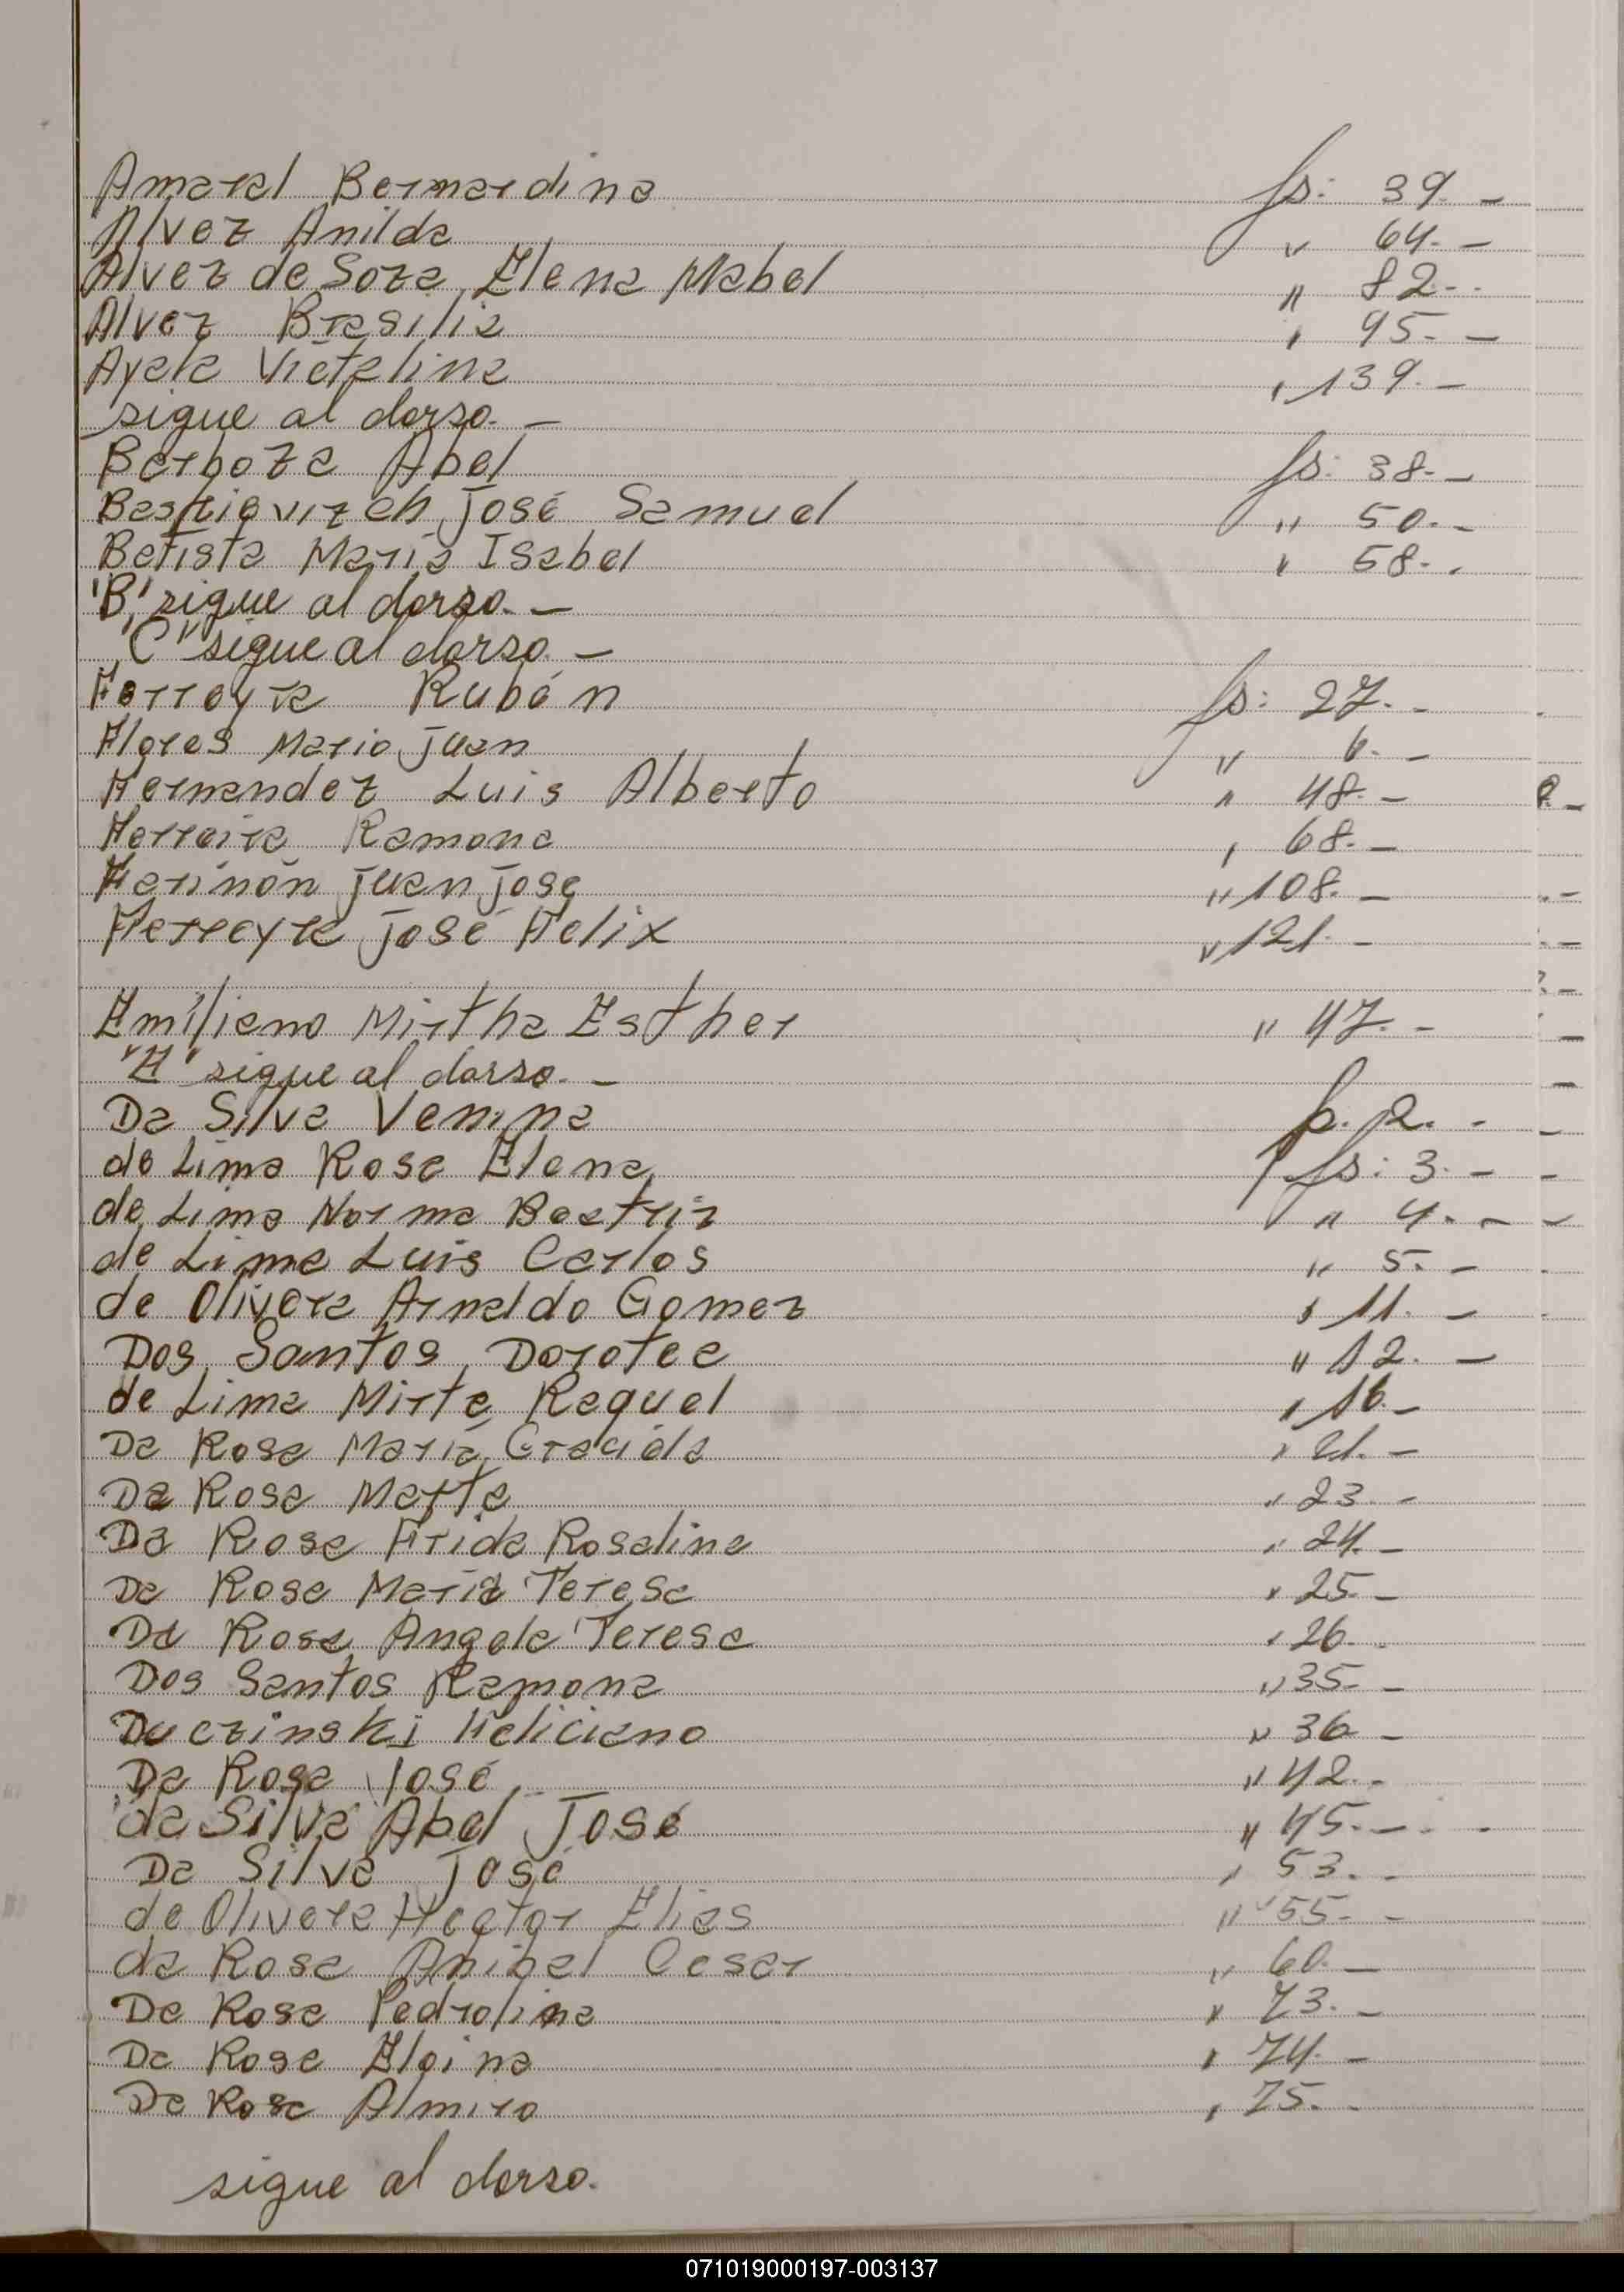 Amaral Bernardina fs: 39.-
Alvez Anilda " 64.-
Alvez de Soza Elena Mabel " 82.-
Alvez Brasilia " 95.-
Ayala Victalina " 139.-
sigue al dorso.-
Barboza Abel fs: 38.-
José Samuel " 50.-
Batista María Isabel " 58.-
"B" sigue al dorso.-
"C" sigue al dorso.-
Ferreyra Rubén fs: 27.-
Flores Mario Juan " 6.-
Fernandez Luis Alberto " 48.-
Ferreira Ramona " 68.-
Fariñón Juan José " 108.-
Ferreyra José Felix " 121.-
Emiliano Mirtha Esther " 47.-
"E" sigue al dorso.-
Da Silva Venina f. 2.-
de Lima Rosa Elena fs: 3.-
de Lima Norma Beatriz " 4.-
de Lima Luis Carlos " 5.-
de Olivera Arnaldo Gomez " 11.-
Dos Santos Dorotea " 12.-
de Lima Mirta Raquel " 16.-
Da Rosa María Graciela " 21.-
Da Rosa Marta " 23.-
Da Rosa Frida Rosalina " 24.-
Da Rosa María Teresa " 25.-
Da Rosa Angela Teresa " 26.-
Dos Santos Ramona " 35.-
Duczinski Feliciano " 36-
Da Rosa José " 42.-
da Silva Abel José " 45.-
Da Silva José " 53.-
de Olivera Hector Elias " 55.-
da Rosa Anibal Cesar " 60.-
Da Rosa Pedrolina " 73.-
Da Rosa Eloina " 74.-
Da Rosa Almiro " 75.-
sigue al dorso.
071019000197-003137